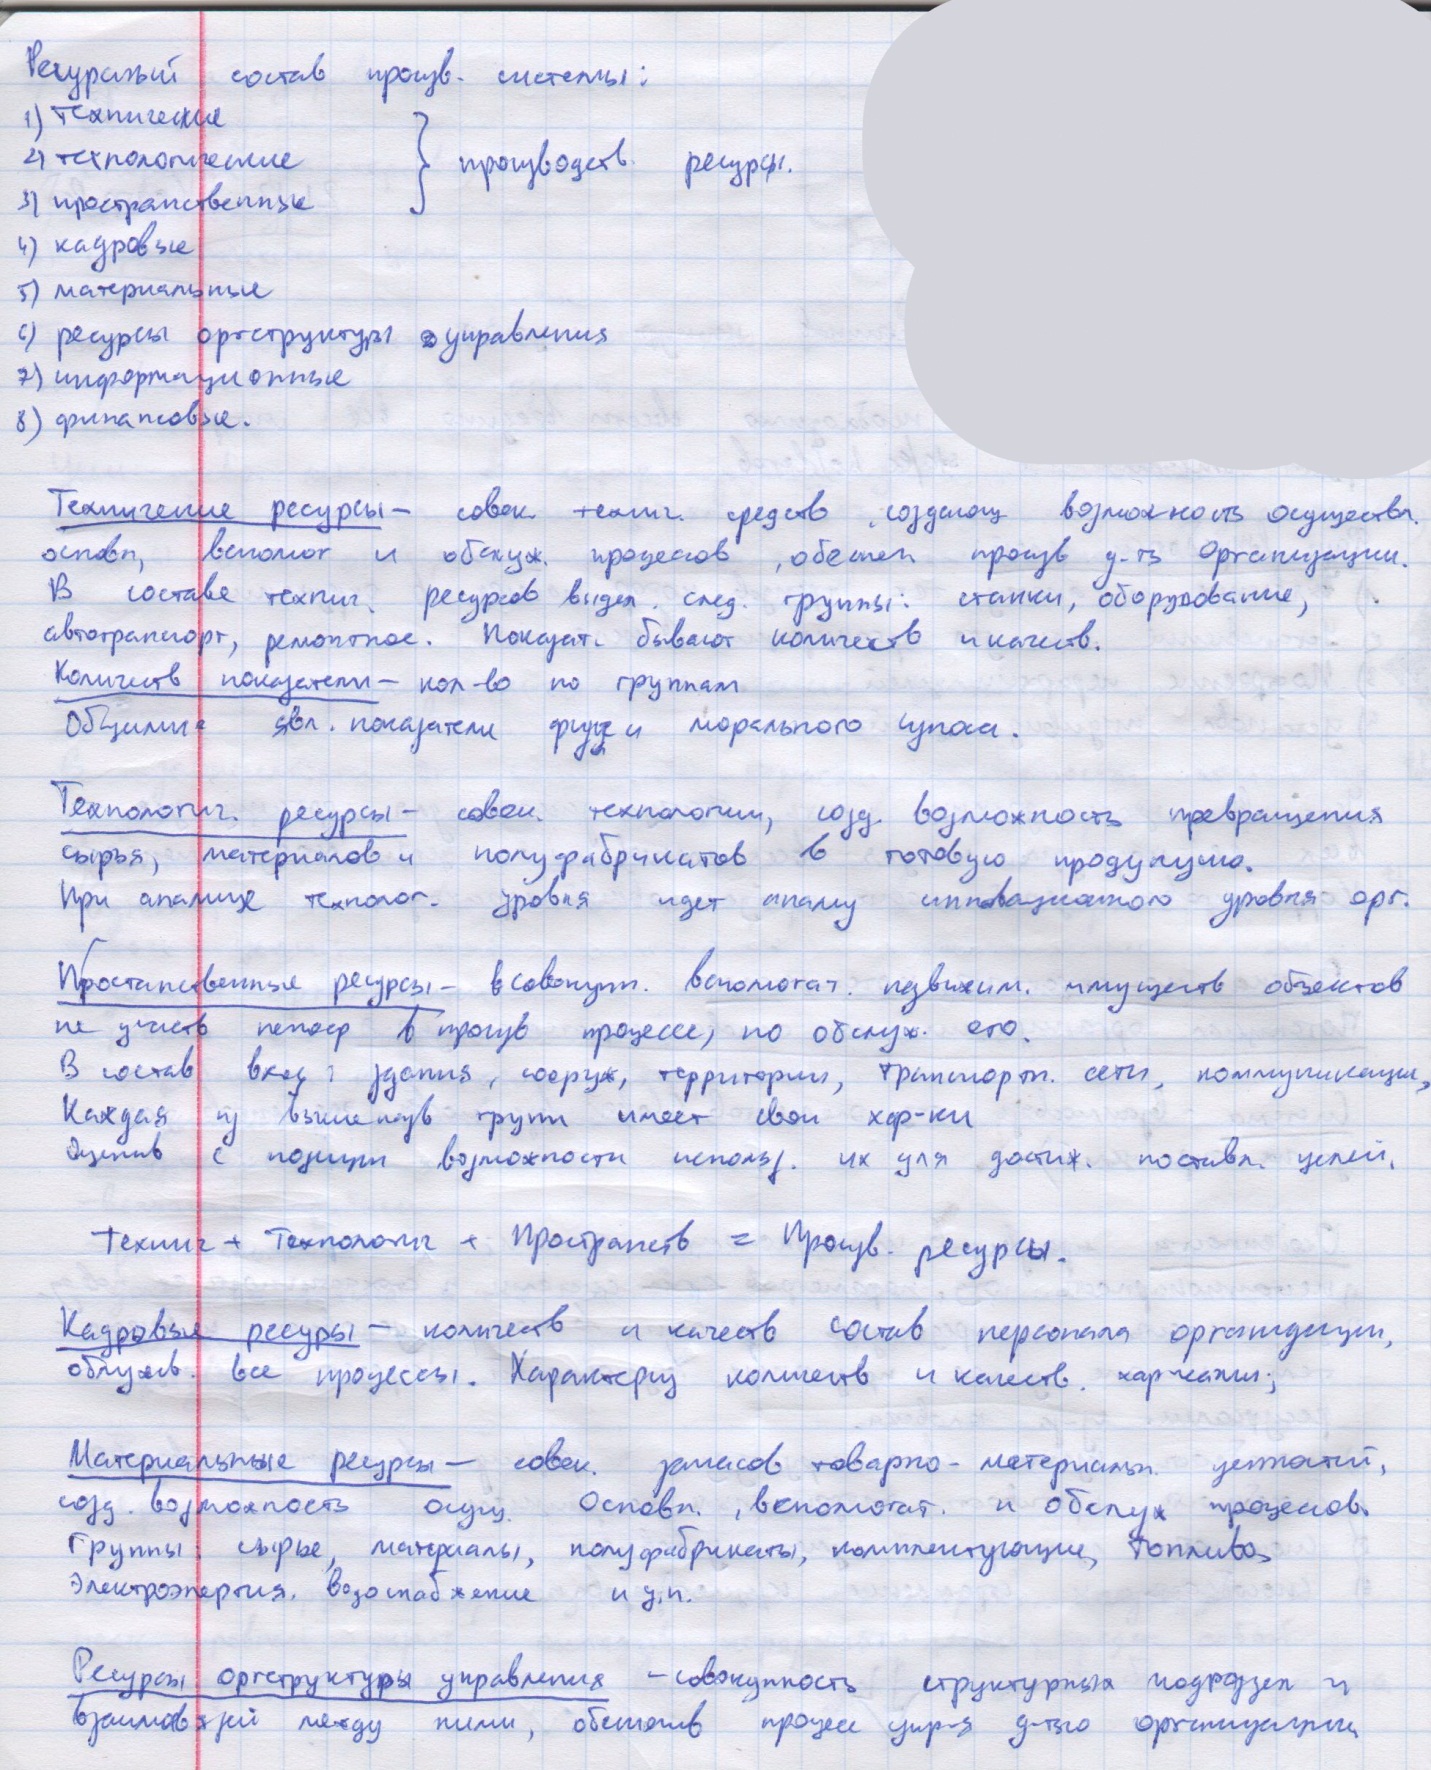 Ресурсный состав произв. системы:
1) технические
2) технологические
3) пространственные
} производств. ресурсы.
4) кадровые
5) материальные
6) ресурсы оргструктуры управления
7) информационные
8) финансовые.
Технические ресурсы – совок. технич. средств, создающ возможность осуществл.
основн, вспомог и обслуж. процессов, обеспеч произв д-ть организации.
В составе технич. ресурсов выдел. след. группы: станки, оборудование,
автотранспорт, ремонтное. Показат. бывают количеств и качеств.
Количеств показатели – кол-во по группам
Общими явл. показатели физ и морального износа.
Технологич. ресурсы – совок. технологии, созд. возможность превращения
сырья, материалов и полуфабрикатов в готовую продукцию.
При анализе технолог. уровня идет анализ инновационного уровня орг.
Простанственные ресурсы – совокупн. вспомогат. недвижим. имуществ объектов
не участв непоср в произв процессе, но обслуж. его.
В состав вход: здания, сооруж, территории, транспортн. сети, коммуникации,
Каждая из вышеназв групп имеет свои хар-ки
Оценив с позиции возможности использ. их для достиж. поставл. целей.
Технич + Технологич + Пространств = Произв. ресурсы.
Кадровые ресурсы – количеств и качеств состав персонала организации,
все процессы. Характериз количеств и качеств. хар-ками;
Материальные ресурсы – совок. запасов товарно-материальн. ценностей,
созд. возможность осущ. основн., вспомогат. и обслуж процессов.
Группы: сырье, материалы, полуфабрикаты, комплектующие, топливо,
Электроэнергия. водоснабжение и др.
Ресурсы оргструктуры управления – совокупность структурных подраздел и
взаимосвязей между ними, обеспечив процесс упр-я д-тью организации